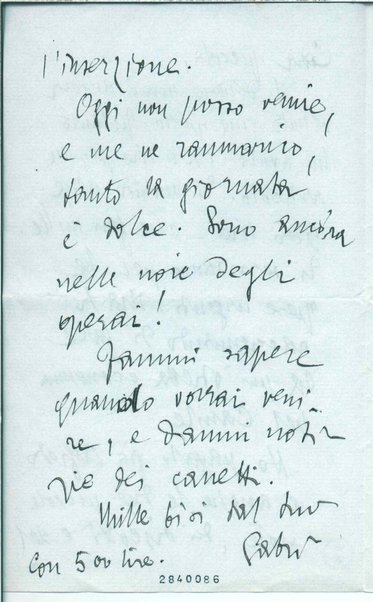 l'inserzione.
Oggi non posso venire,
e me ne rammarico,
tanto la giornata
è dolce. Sono ancóra
nelle noie degli
operai!
Fammi sapere
quando vorrai veni-
re, e dammi noti-
zie dei canetti.
Mille baci dal tuo
Gabri
Con 500 lire.
2840086